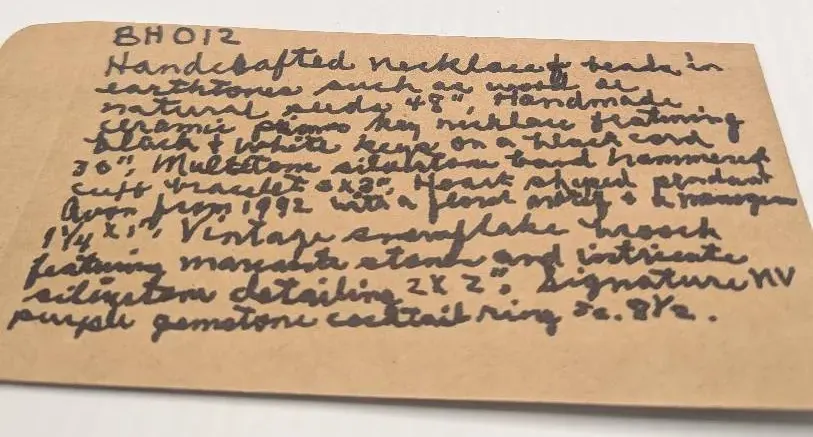 BH012
Handcrafted necklace & beads in
earthtones such as wood &
natural seeds 48", Handmade
ceramic piano key necklace featuring
black & white keys on a black cord
30", Multitone silvertone band hammered
cuff bracelet 3x3", Heart shaped pendant
Avon from 1992 with a floral motif &
1 1/4 x 1", Vintage snowflake brooch
featuring marcasite stones and intricate
silvertone detailing 2x2", Signature NV
purple gemstone cocktail ring sz. 8 1/2.